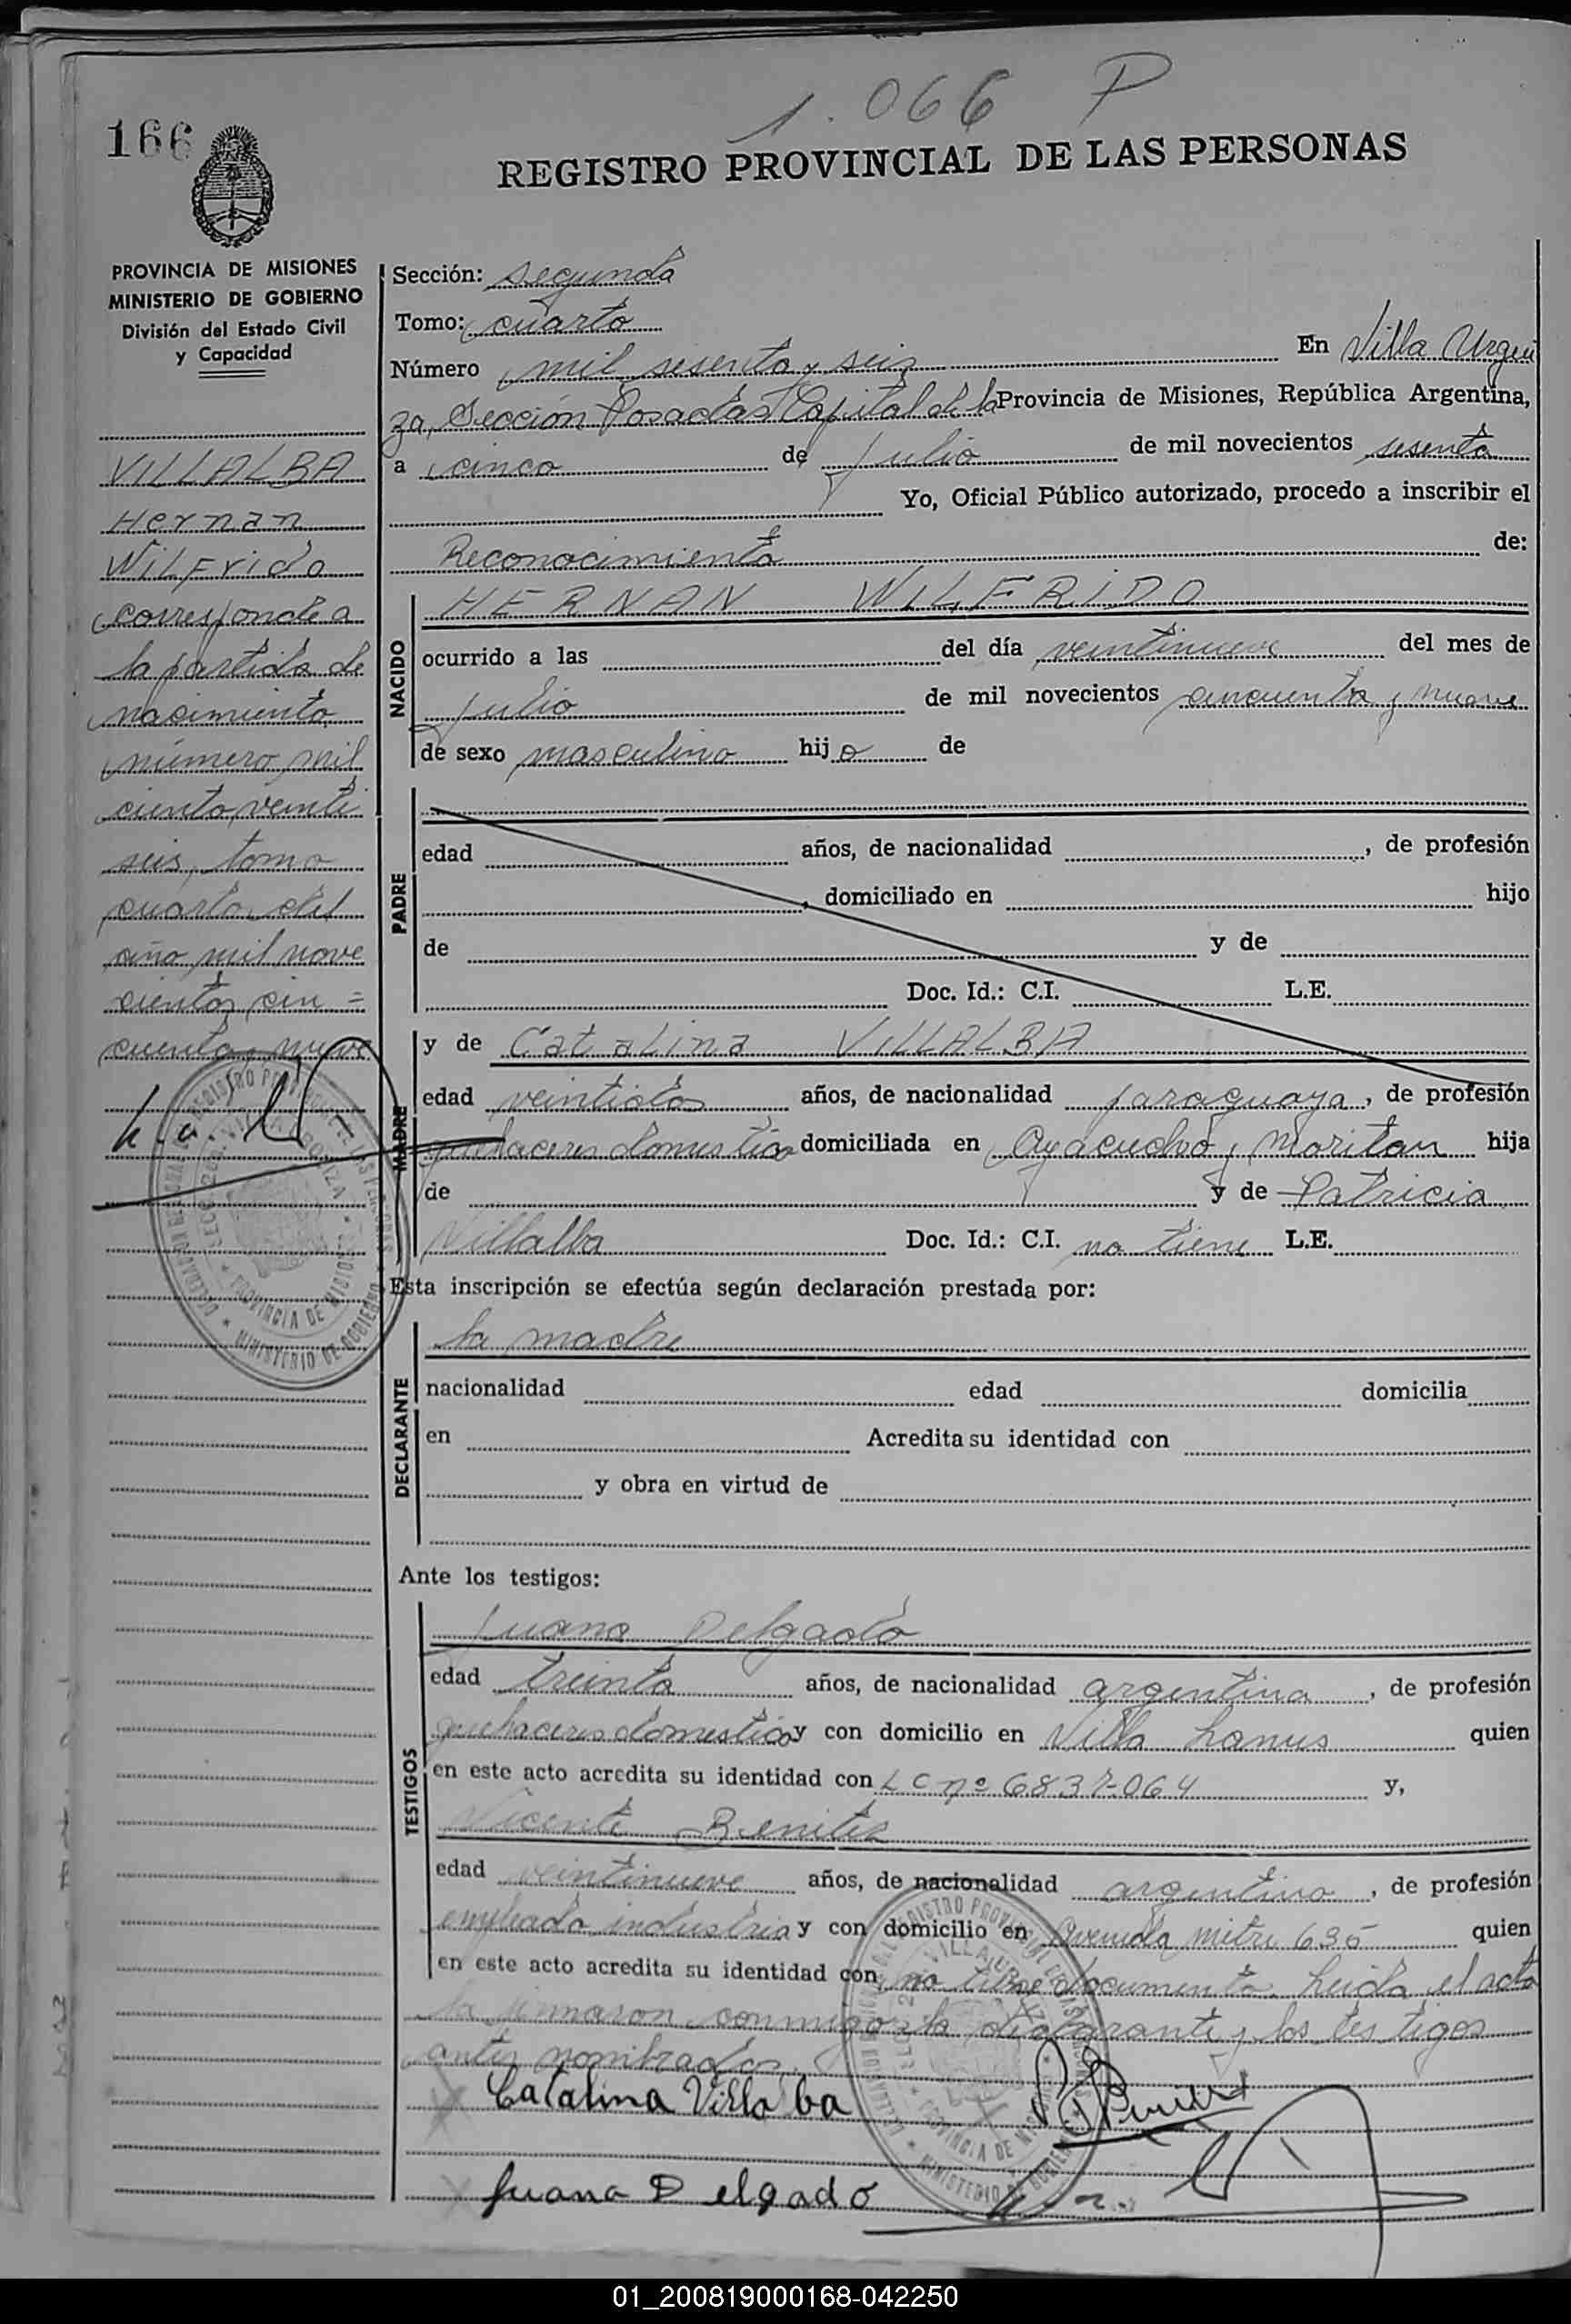 1.066 P
166
REGISTRO PROVINCIAL DE LAS PERSONAS
PROVINCIA DE MISIONES
MINISTERIO DE GOBIERNO
División del Estado Civil
y Capacidad
VILLALBA
Hernan
Wilfrido
corresponde a
la partida de
nacimiento
número mil
ciento veinti
seis, tomo
cuarto del
año mil nove
cientos cin =
cuenta y nueve
Sección: segunda
Tomo: cuarto
Número mil sesenta y seis En Villa Urqui
za, Sección Posadas Capital de la Provincia de Misiones, República Argentina,
a cinco de julio de mil novecientos sesenta
Yo, Oficial Público autorizado, procedo a inscribir el
Reconocimiento de:
NACIDO
HERNAN WILFRIDO
ocurrido a las del día veintinueve del mes de
julio de mil novecientos cincuenta y nueve
de sexo masculino hijo de
PADRE
edad años, de nacionalidad , de profesión
, domiciliado en hijo
de y de
Doc. Id.: C.I. L.E.
MADRE
y de Catalina VILLALBA
edad veintidos años, de nacionalidad paraguaya, de profesión
quehaceres domestico domiciliada en Ayacucho y Moritan hija
de y de Patricia
Villalba Doc. Id.: C.I. no tiene L.E.
Esta inscripción se efectúa según declaración prestada por:
DECLARANTE
la madre
nacionalidad edad domicilia
en Acredita su identidad con
y obra en virtud de
Ante los testigos:
TESTIGOS
Juana Delgado
edad treinta años, de nacionalidad argentina, de profesión
quehaceres domestico y con domicilio en Villa Lanus quien
en este acto acredita su identidad con L C nº 6837-064 y,
Vicente Benitez
edad veintinueve años, de nacionalidad argentino, de profesión
empleado industria y con domicilio en Avenida mitre 635 quien
en este acto acredita su identidad con no tiene documento. Leida el acta
la firmaron conmigo la declarante y los testigos
antes nombrados.
Catalina Villalba
Juana Delgado
01_200819000168-042250